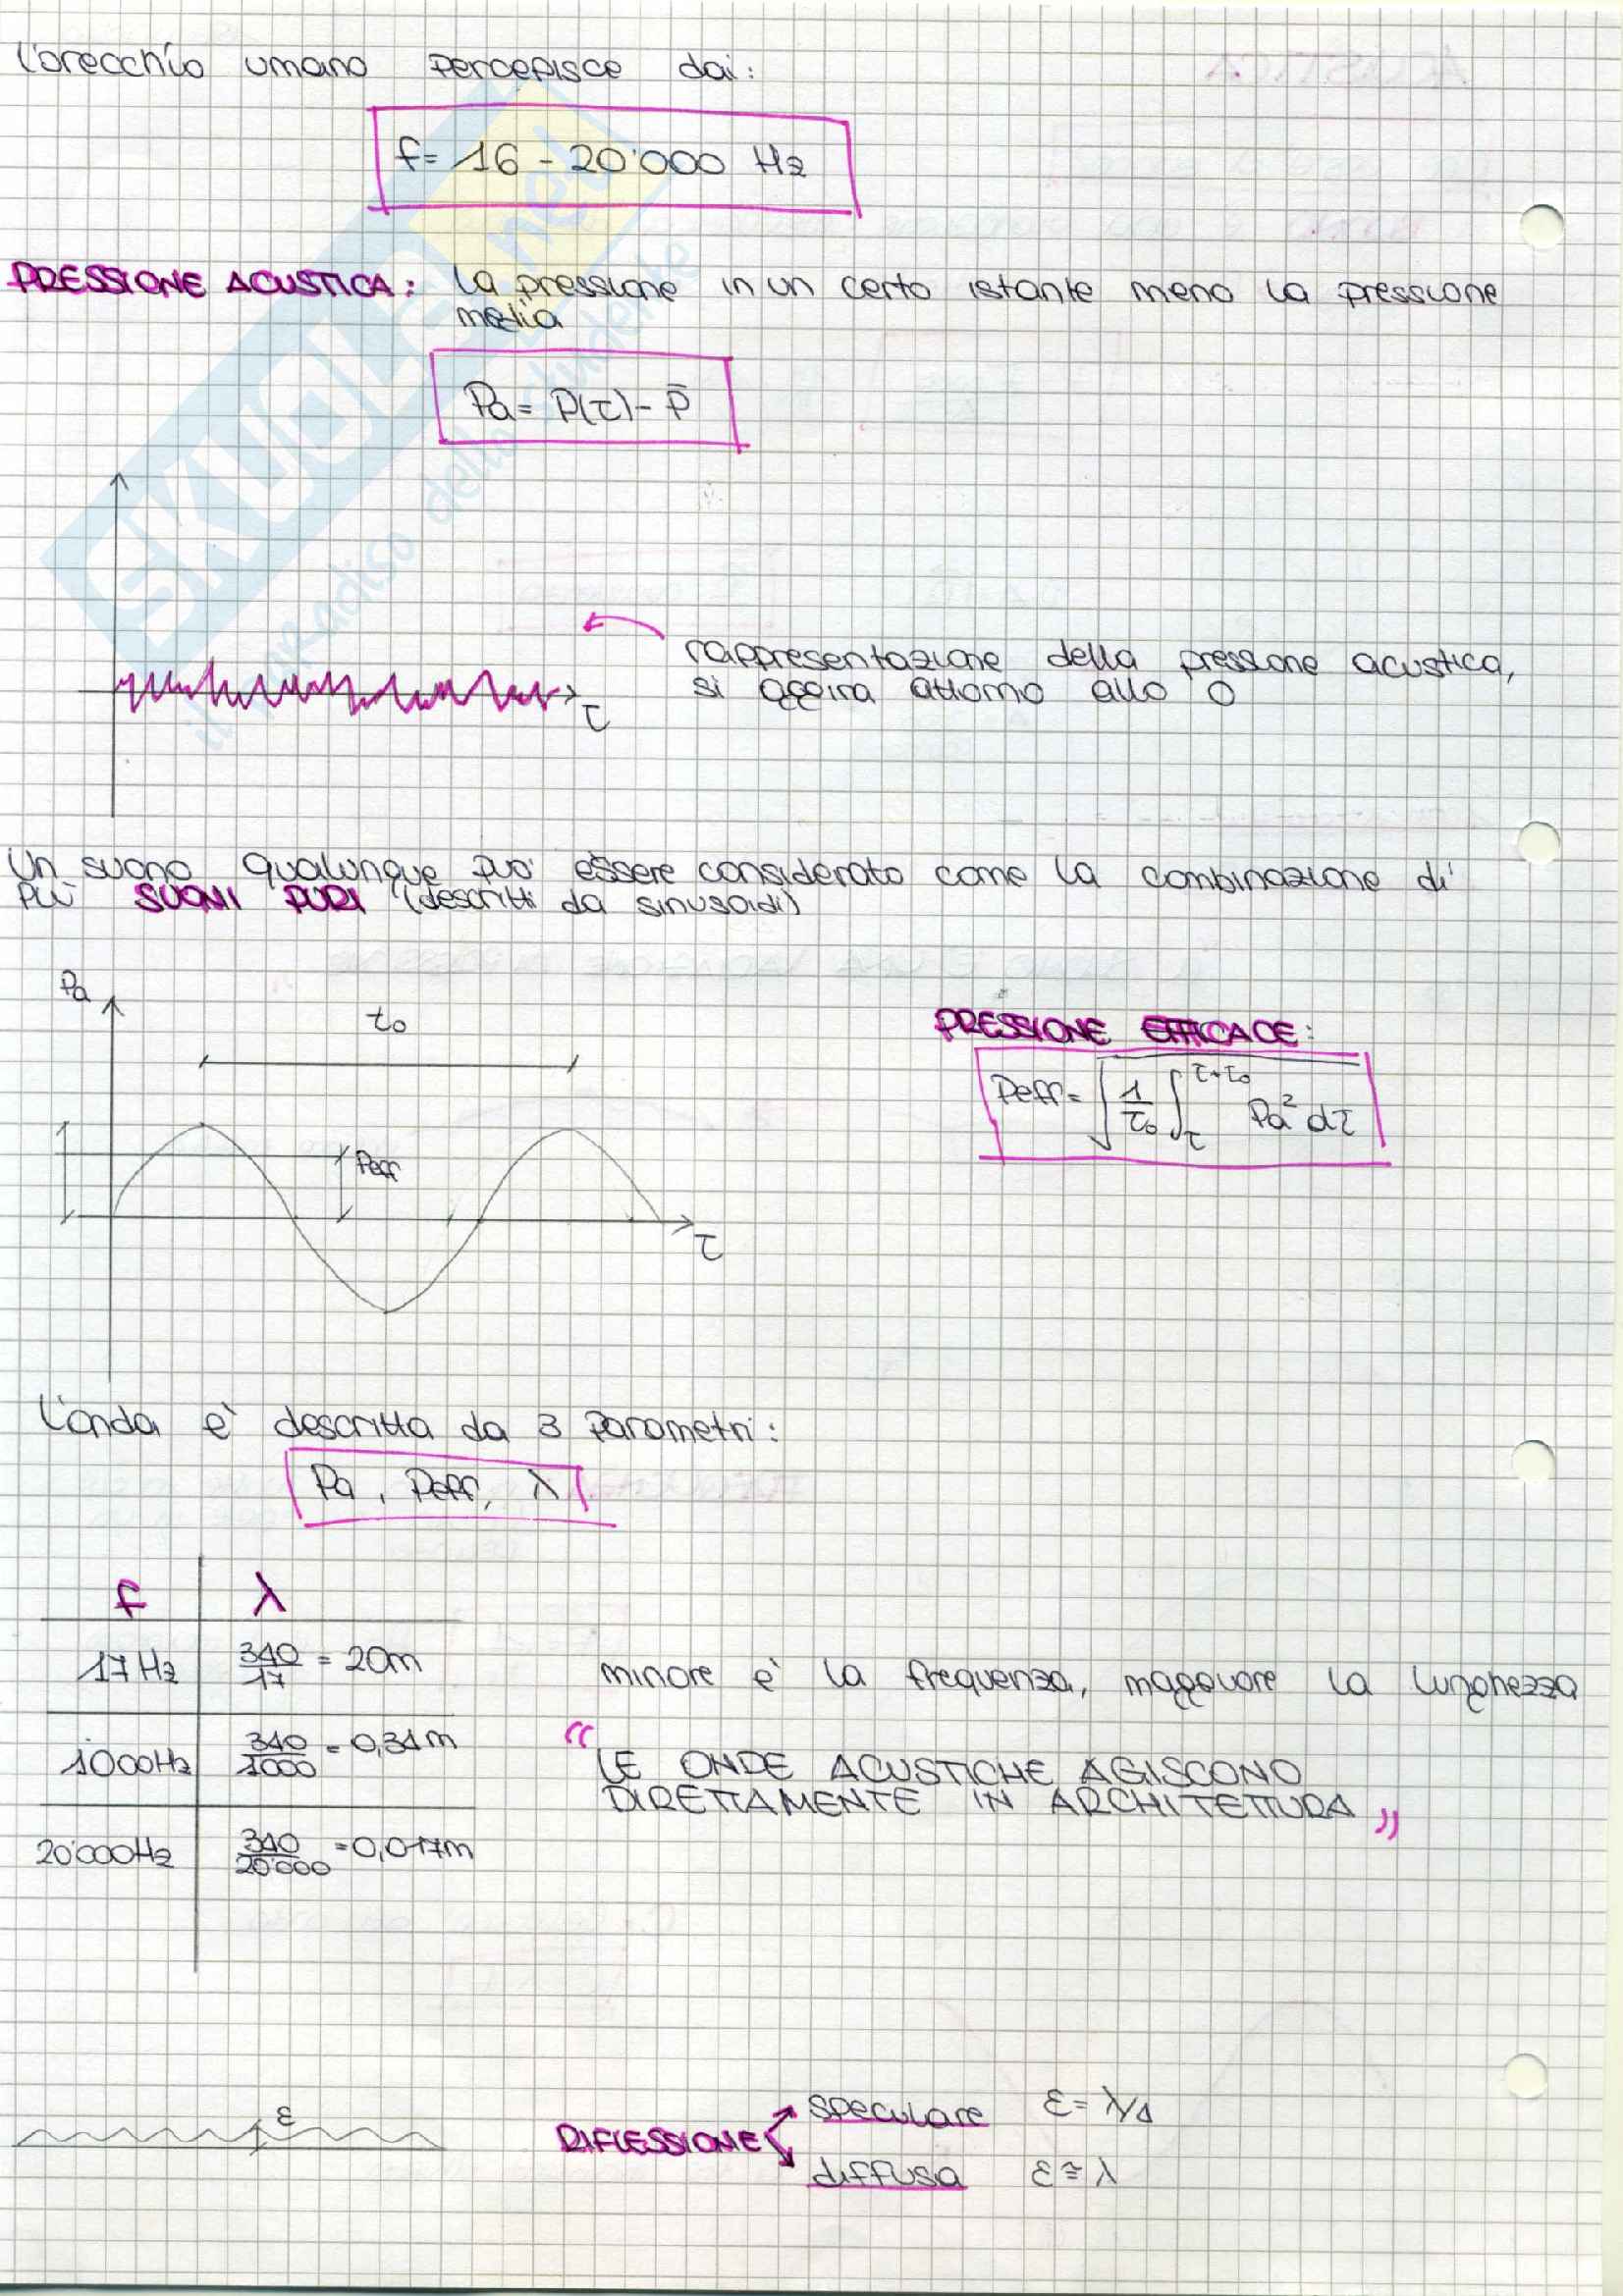 L'orecchio umano percepisce dai:
f= 16 - 20'000 Hz
PRESSIONE ACUSTICA: la pressione in un certo istante meno la pressione
media
Pa = P(τ) - P̄
rappresentazione della pressione acustica,
si aggira attorno allo 0
τ
Un suono qualunque può essere considerato come la combinazione di
più SUONI PURI (descritti da sinusoidi)
Pa
τ₀
PRESSIONE EFFICACE:
Peff = √ 1/τ₀ ∫ τ τ+τ₀ Pa² dτ
Peff
τ
L'onda è descritta da 3 parametri:
Pa, Peff, λ
f λ
17 Hz 340/17 = 20m
minore è la frequenza, maggiore la lunghezza
1000Hz 340/1000 = 0,34m
" LE ONDE ACUSTICHE AGISCONO
DIRETTAMENTE IN ARCHITETTURA "
20'000Hz 340/20'000 = 0,017m
ε
RIFLESSIONE
speculare ε = λ/4
diffusa ε ≅ λ
SKUOLA.net